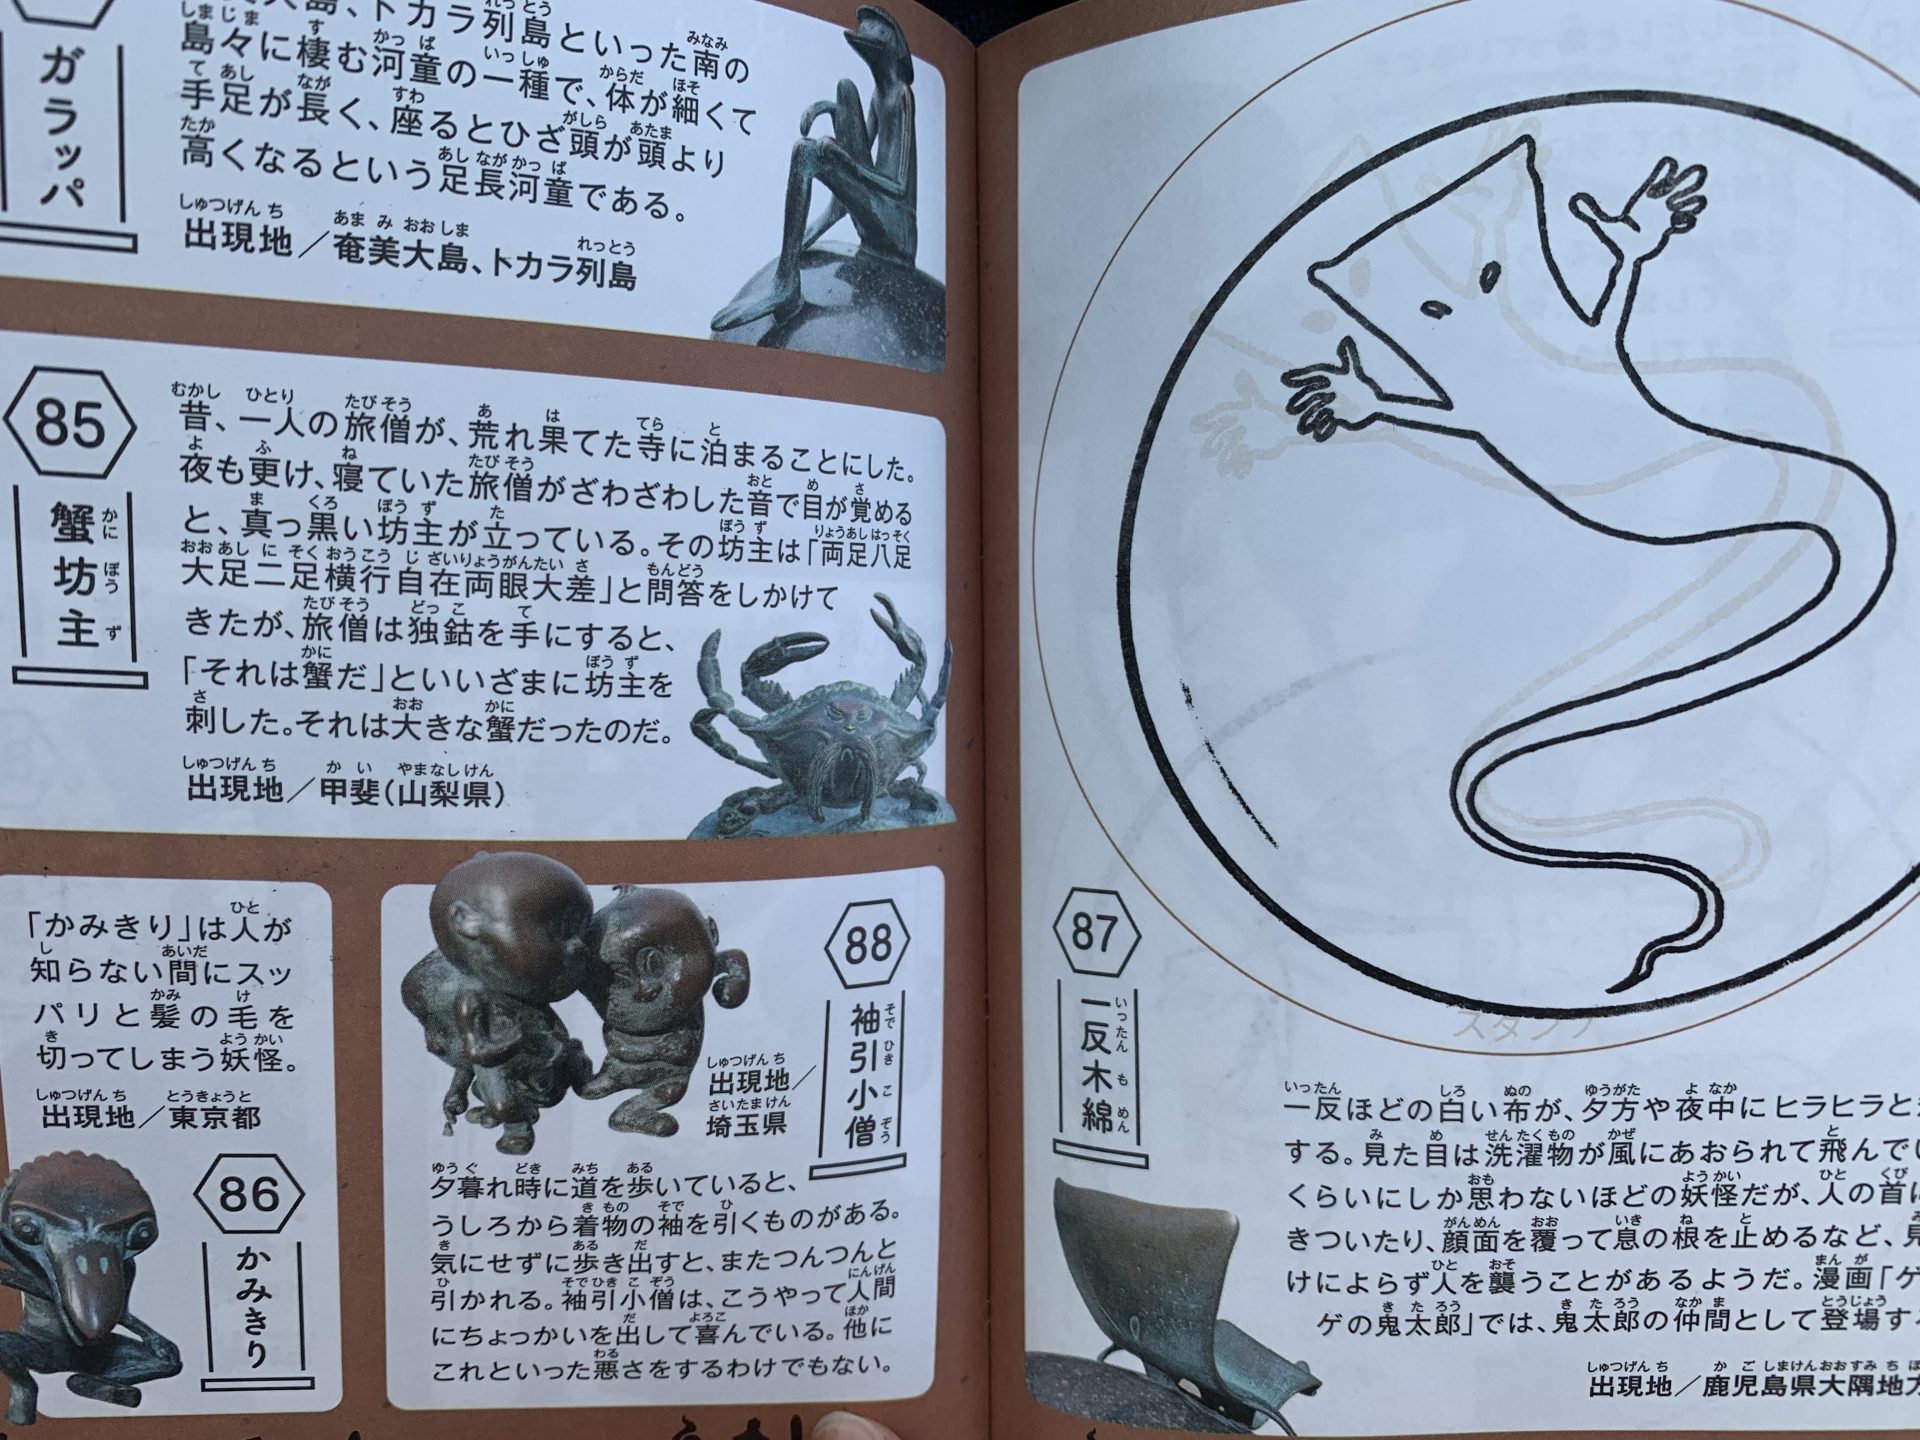 ガラッパ
島、トカラ列島といった南の
島々に棲む河童の一種で、体が細くて
手足が長く、座るとひざ頭が頭より
高くなるという足長河童である。
出現地／奄美大島、トカラ列島
85
蟹坊主
昔、一人の旅僧が、荒れ果てた寺に泊まることにした。
夜も更け、寝ていた旅僧がざわざわした音で目が覚める
と、真っ黒い坊主が立っている。その坊主は「両足八足
大足二足横行自在両眼大差」と問答をしかけて
きたが、旅僧は独鈷を手にすると、
「それは蟹だ」といいざまに坊主を
刺した。それは大きな蟹だったのだ。
出現地／甲斐（山梨県）
「かみきり」は人が
知らない間にスッ
パリと髪の毛を
切ってしまう妖怪。
出現地／東京都
86
かみきり
88
袖引小僧
出現地／
埼玉県
夕暮れ時に道を歩いていると、
うしろから着物の袖を引くものがある。
気にせずに歩き出すと、またつんつんと
引かれる。袖引小僧は、こうやって人間
にちょっかいを出して喜んでいる。他に
これといった悪さをするわけでもない。
スタンプ
87
一反木綿
一反ほどの白い布が、夕方や夜中にヒラヒラと
する。見た目は洗濯物が風にあおられて飛んで
くらいにしか思わないほどの妖怪だが、人の首に
きついたり、顔面を覆って息の根を止めるなど、見
けによらず人を襲うことがあるようだ。漫画「ゲ
ゲの鬼太郎」では、鬼太郎の仲間として登場す
出現地／鹿児島県大隅地方